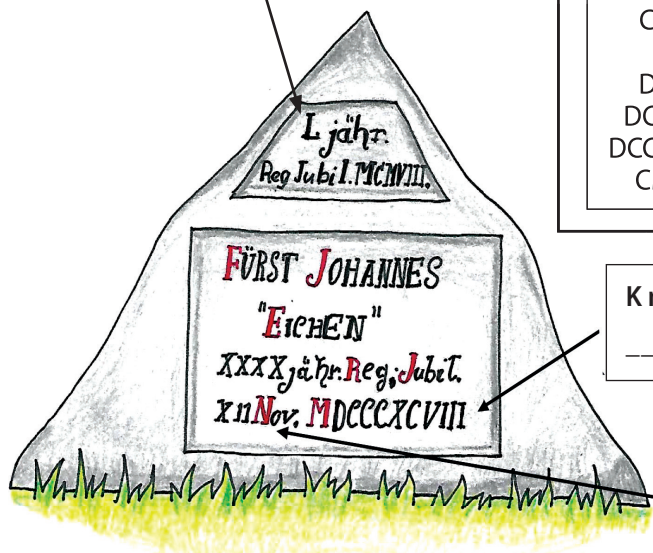 L jähr.
Reg Jubil. MCMVIII.
FÜRST JOHANNES
"EICHEN"
XXXX jähr. Reg; Jubil.
XII Nov. MDCCCXCVIII
C
D
DC
DCC
C
K